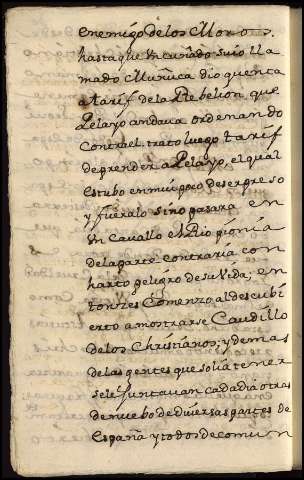 enemigo de los Moros.
hasta que un cuñado suio lla
mado Munuca dio quenta
a tarif de la Rebelion que
Pelayo andava ordenando
Contra el, trato luego tarif
de prender a Pelayo, el qual
estubo en mui poco de ser preso
y fueralo sino pasara en
un Cavallo el Rio pionia
de la parte contraria con
harto peligro de su Vida; en
tonzes Comenzo al descubi
erto a mostrarse Caudillo
de los Christianos; y demas
de las gentes que solia tener
sele Juntavan cada dia otras
de nuebo de diversas partes de
España y todos de comun